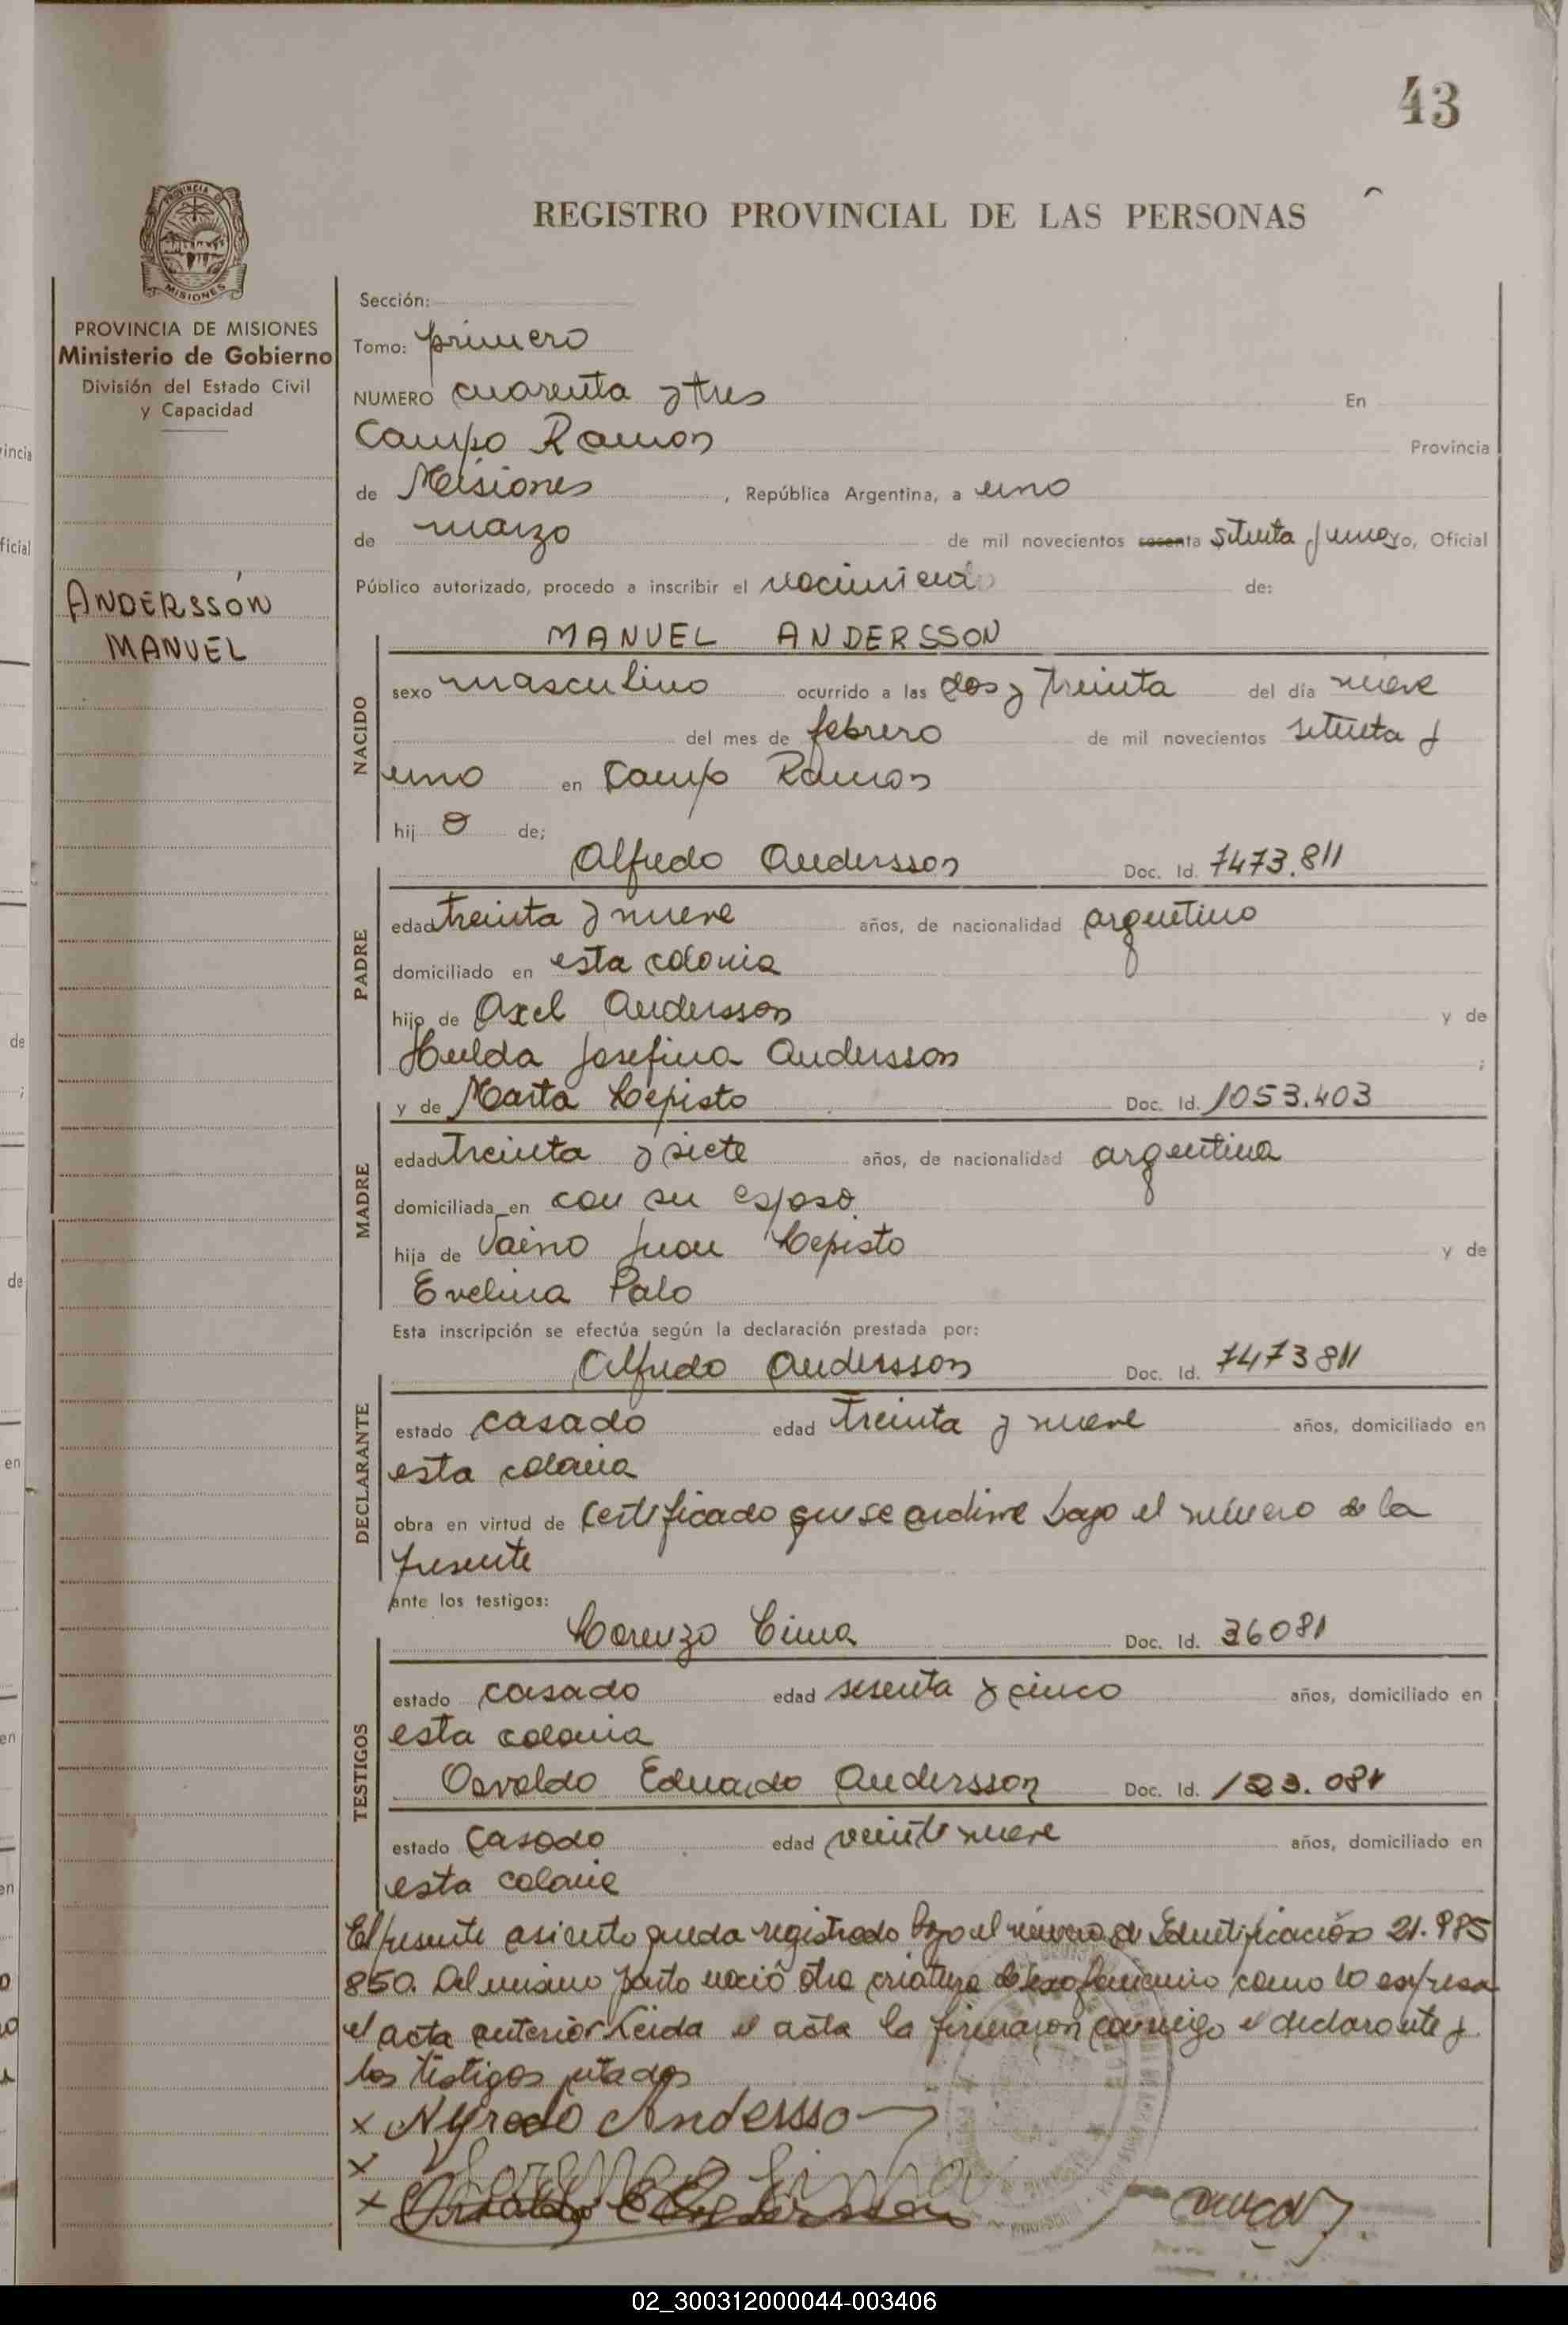 43
REGISTRO PROVINCIAL DE LAS PERSONAS
PROVINCIA DE MISIONES
Ministerio de Gobierno
División del Estado Civil
y Capacidad
ANDERSSON
MANUEL
Sección:
Tomo: primero
NUMERO cuarenta y tres En
Campo Ramon Provincia
de Misiones , República Argentina, a uno
de marzo de mil novecientos sesenta setenta y uno yo, Oficial
Público autorizado, procedo a inscribir el nacimiento de:
MANUEL ANDERSSON
NACIDO
sexo masculino ocurrido a las dos y treinta del día nueve
del mes de febrero de mil novecientos setenta y
uno en Campo Ramon
hij o de;
Alfredo Andersson Doc. Id. 7473.811
PADRE
edad treinta y nueve años, de nacionalidad argentino
domiciliado en esta colonia
hijo de Axel Andersson y de
Hulda Josefina Andersson ;
y de Marta Lepisto Doc. Id. 1053.403
MADRE
edad treinta y siete años, de nacionalidad argentina
domiciliada en con su esposo
hija de Vaino Juan Lepisto y de
Evelina Palo
Esta inscripción se efectúa según la declaración prestada por:
Alfredo Andersson Doc. Id. 7473811
DECLARANTE
estado casado edad treinta y nueve años, domiciliado en
esta colonia
obra en virtud de certificado que se archive bajo el número de la
presente
ante los testigos:
Lorenzo Lima Doc. Id. 36081
TESTIGOS
estado casado edad sesenta y cinco años, domiciliado en
esta colonia
Osvaldo Eduardo Andersson Doc. Id.
estado casado edad veintinueve años, domiciliado en
esta colonia
El presente asiento queda registrado bajo el número de Identificación 21.985
850. Del mismo parto nació otra criatura de sexo femenino como lo expresa
el acta anterior Leida el acta la firmaron conmigo el declarante y
los testigos citados
x Alfredo Andersson
x
x
02_300312000044-003406